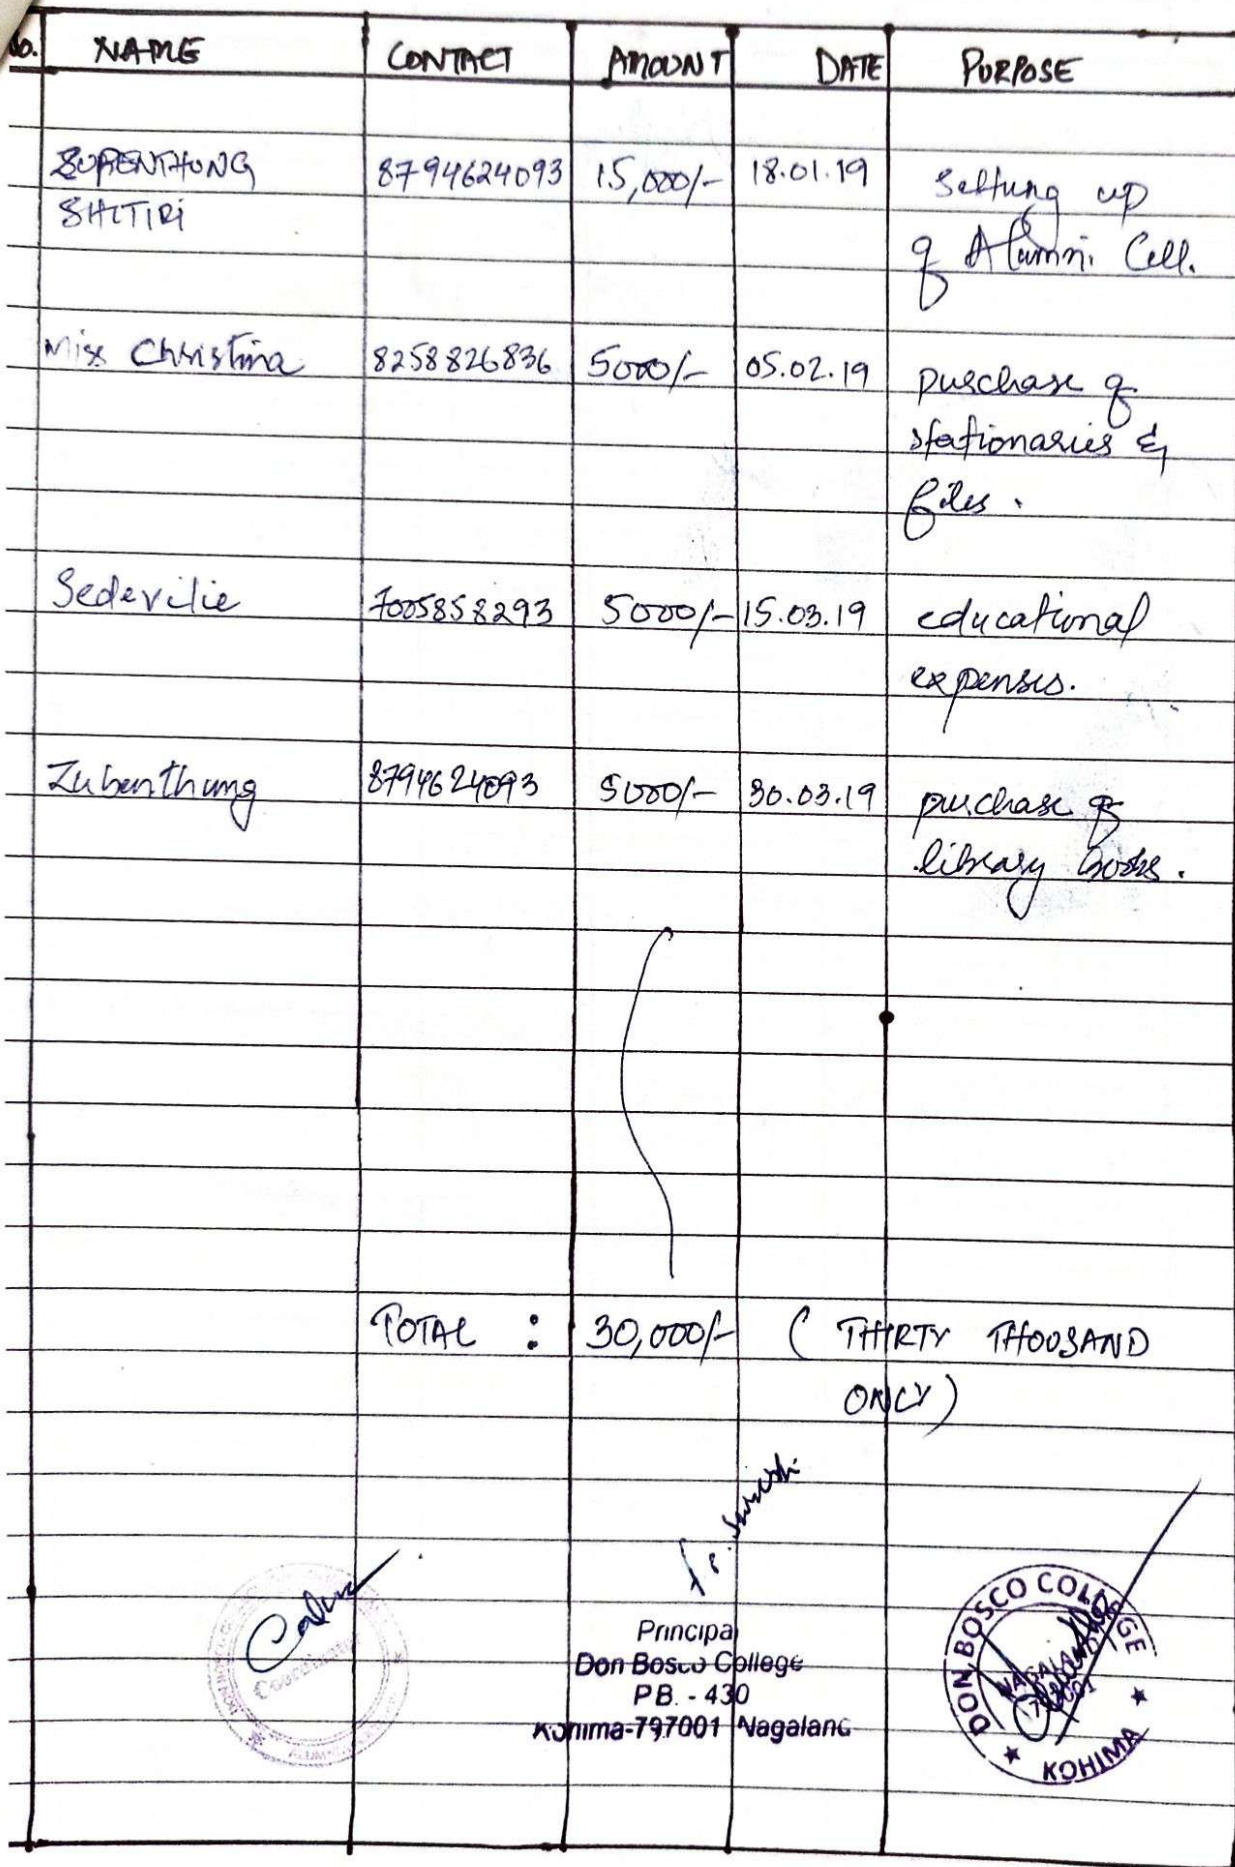 No. NAME CONTACT AMOUNT DATE PURPOSE
ZUBENTHUNG 8794624093 15,000/- 18.01.19 Setting up
SHITIRI
of Alumni Cell.
Miss Christina 8258826836 5000/- 05.02.19 purchase of
stationaries &
files.
Sedevilie 7005858293 5000/- 15.03.19 educational
expenses.
Zubenthung 8794624093 5000/- 30.03.19 purchase of
library books.
TOTAL : 30,000/- ( THIRTY THOUSAND
ONLY)
Coordinator
Principal
Don Bosco College
P.B. - 430
Kohima-797001 Nagaland
DON BOSCO COLLEGE
NAGALAND
797001
★ KOHIMA ★